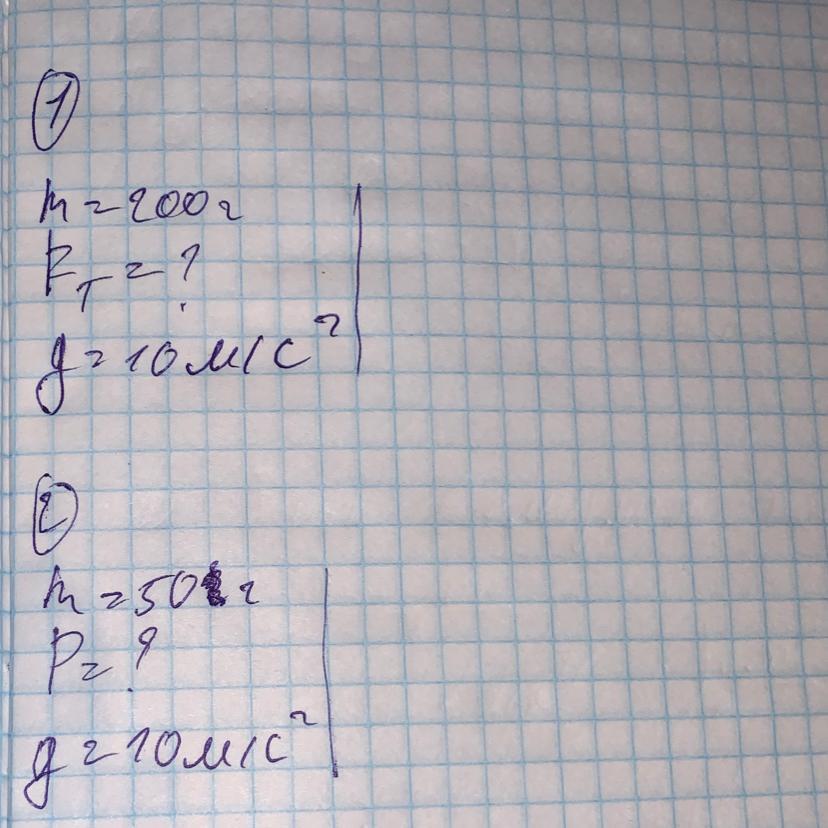 1
m = 200 г
Fт = ?
g = 10 м/с²
2
m = 50 г
P = ?
g = 10 м/с²